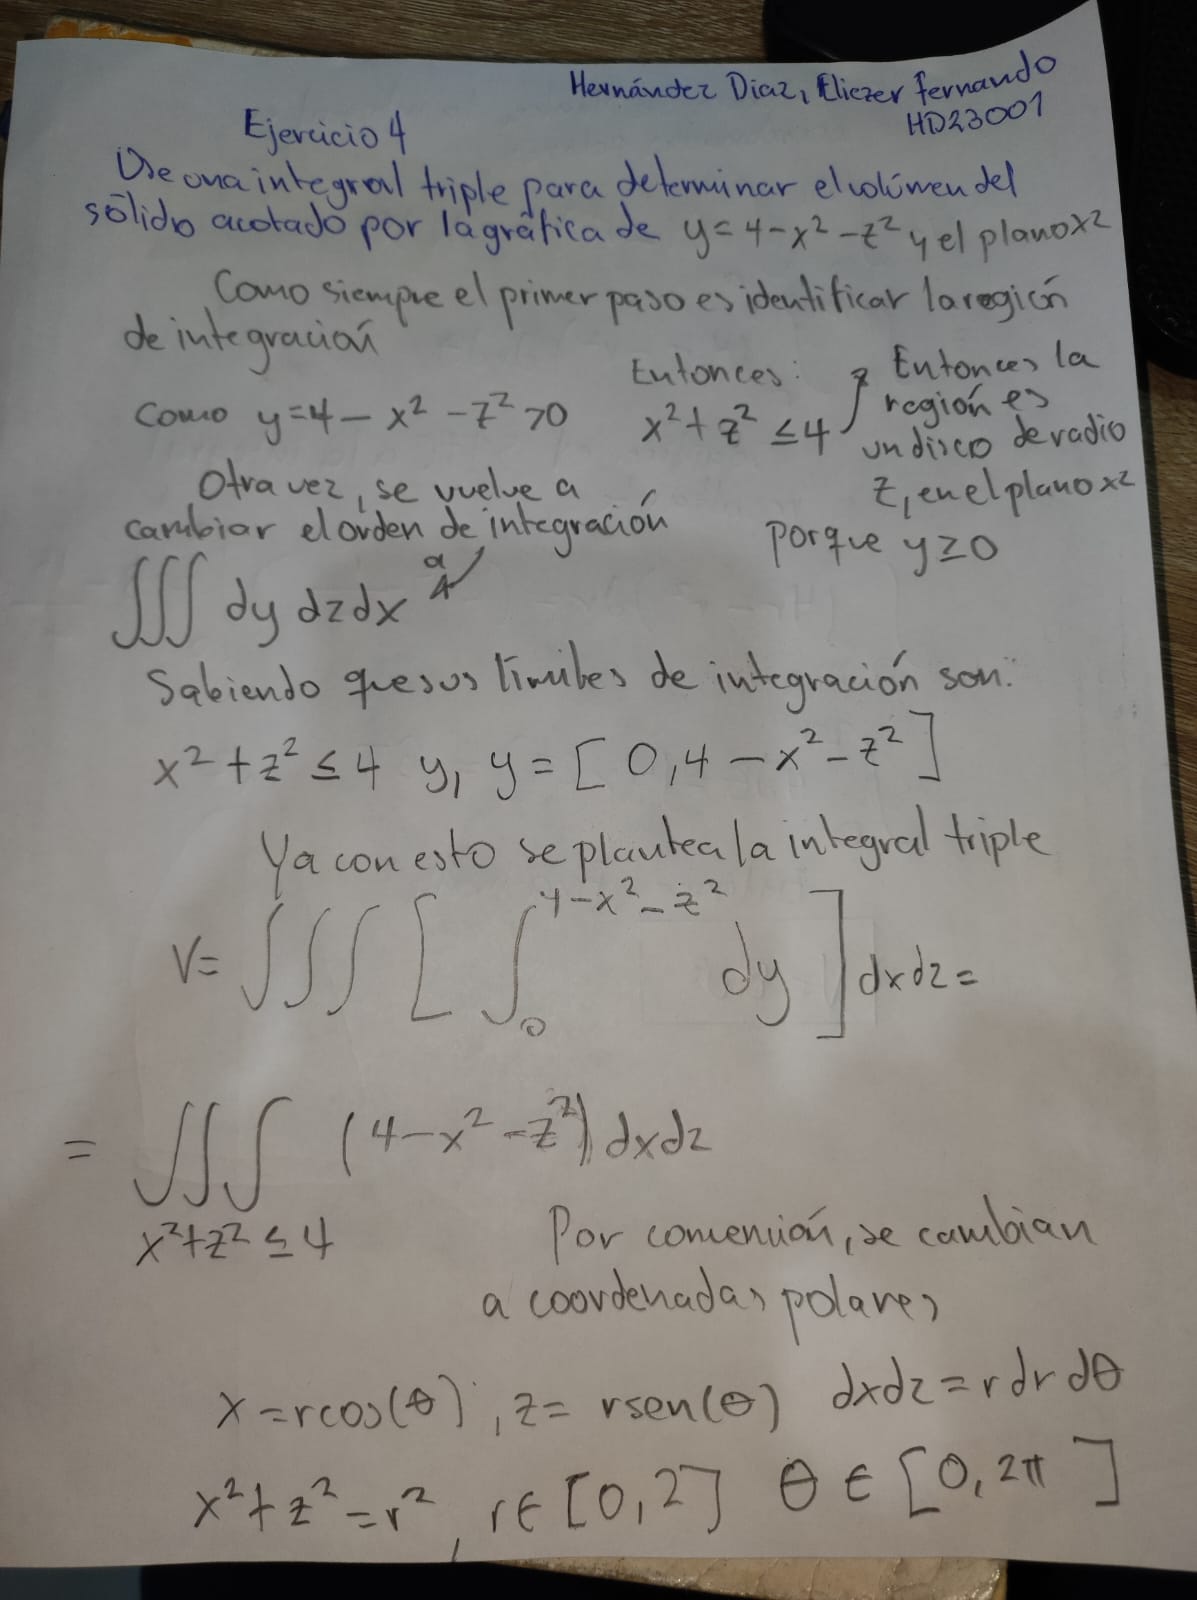 Hernández Diaz, Eliezer fernando
HD23001
Ejercicio 4
Use una integral triple para determinar el volúmen del
sólido acotado por la gráfica de y=4-x²-z² y el plano xz
Como siempre el primer paso es identificar la región
de integración
Como y=4-x²-z²>0
Entonces:
x²+z² ≤4
Entonces la
región es
un disco de radio
z, en el plano xz
porque y≥0
Otra vez, se vuelve a
cambiar el orden de integración
a
∫∫∫ dy dz dx
Sabiendo que sus límites de integración son:
x²+z² ≤ 4 y, y=[0,4-x²-z²]
Ya con esto se plantea la integral triple
V= ∫∫∫ [ ∫₀^(4-x²-z²) dy ] dxdz =
= ∫∫∫ (4-x²-z²) dxdz
x²+z² ≤ 4
Por convención, se cambian
a coordenadas polares
x=rcos(θ), z= rsen(θ) dxdz=rdrdθ
x²+z²=r², r∈[0,2] θ∈[0,2π]